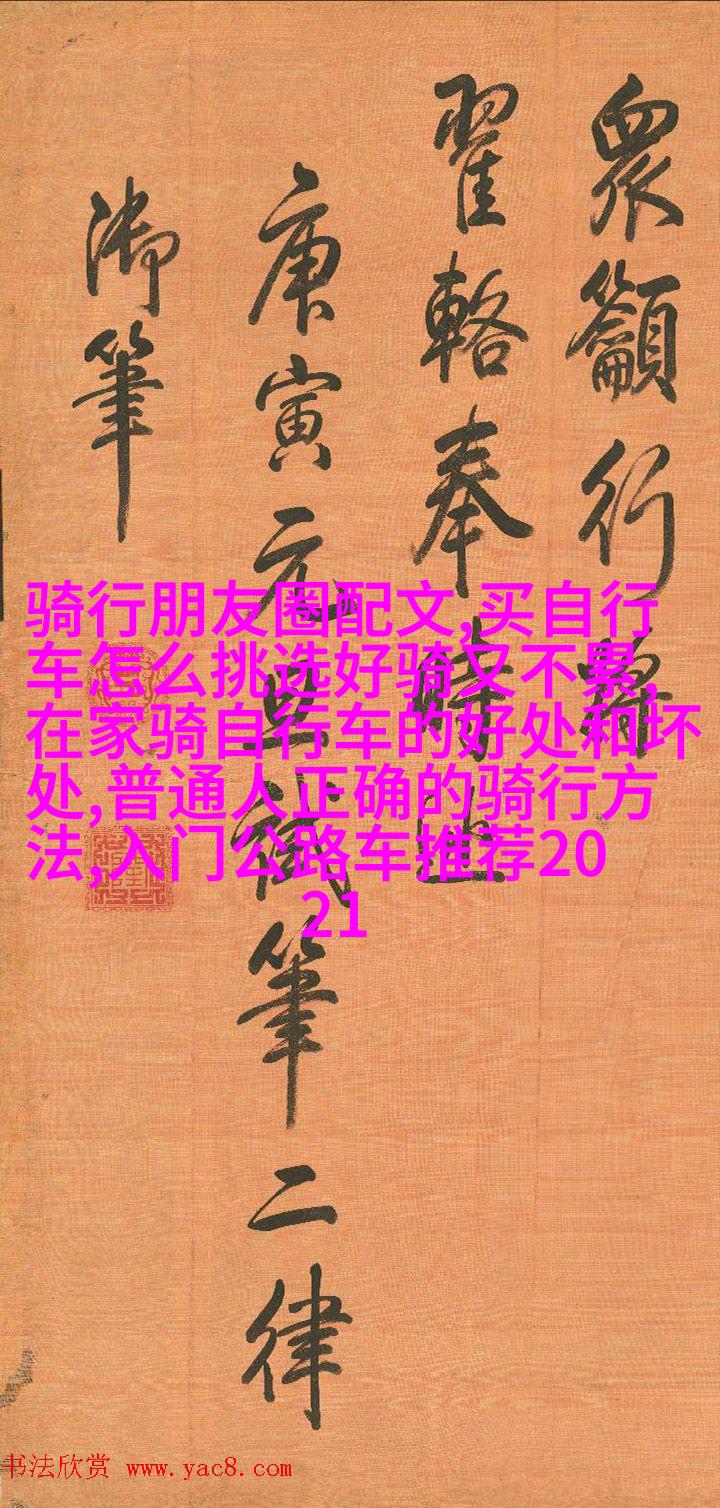 衆籲行
翟輅奉
庚寅元旦試筆二律
御筆
骑行朋友圈配文,买自行
车怎么挑选好骑又不累,
在家骑自行车的好处和坏
处,普通人正确的骑行方
法,入门公路车推荐20
21
书法欣赏 www.yac8.com